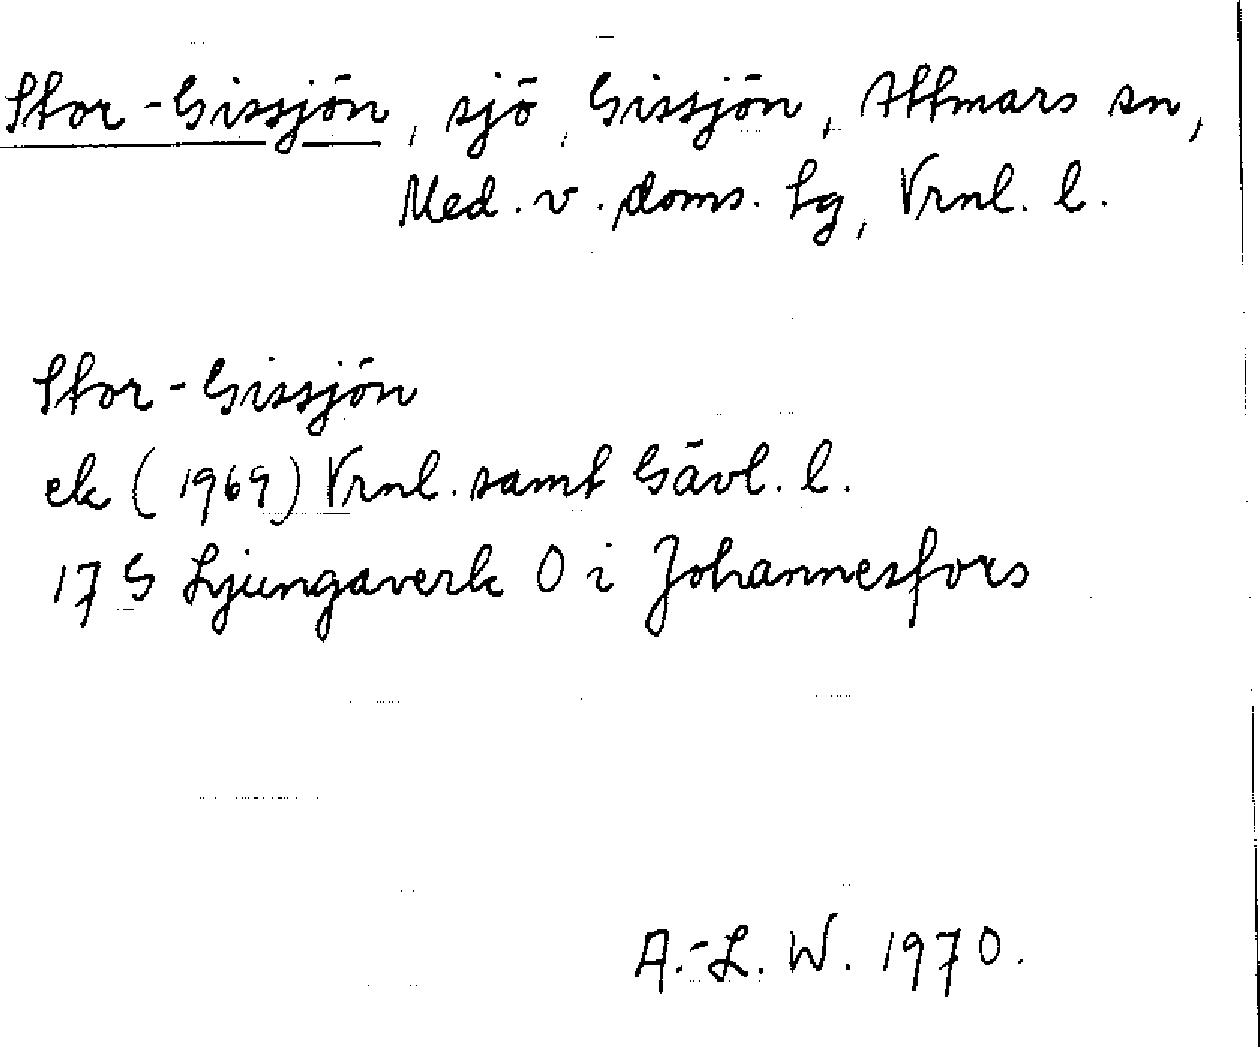 Stor-Gissjön, sjö, Gissjön, Attmars sn,
Med. v. doms. lg, Vrnl. l.
Stor-Gissjön
ek (1969) Vrnl. samt Gävl. l.
17 G Ljungaverk O i Johannesfors
A.-L. W. 1970.